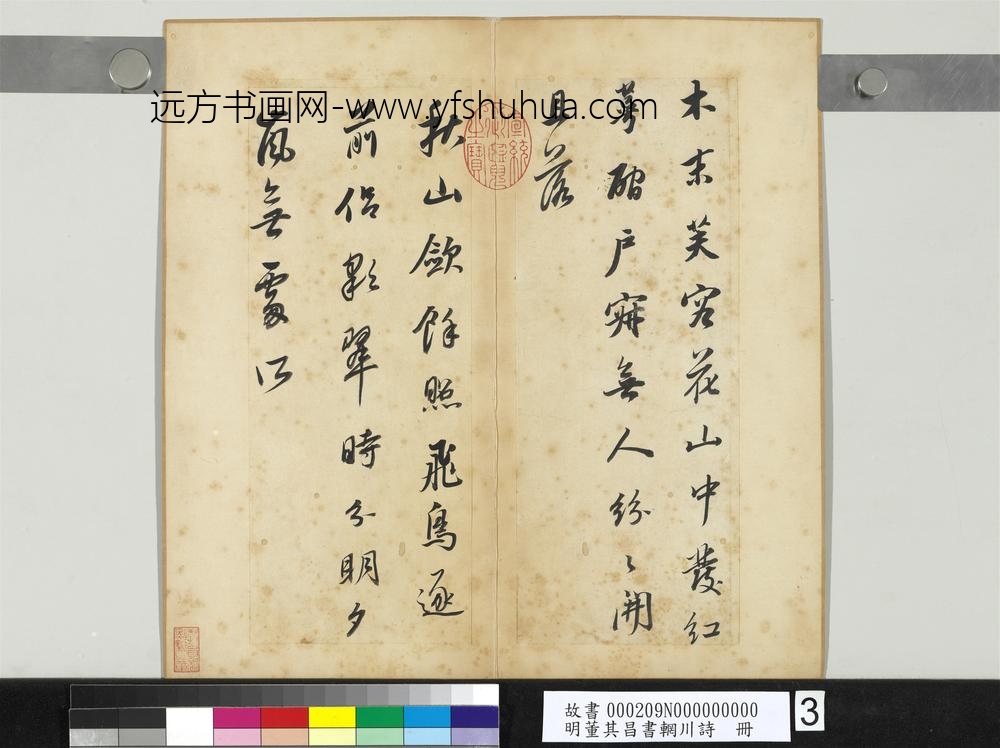 远方书画网-www.yfshuhua.com
木末芙容花山中發紅
萼磵户寂無人紛〻開
且落
秋山歛餘照飛鳥逐
前侣彩翠時分明夕
嵐無處所
宣統御覽之寶
故書 000209N000000000
明董其昌書輞川詩 冊
3